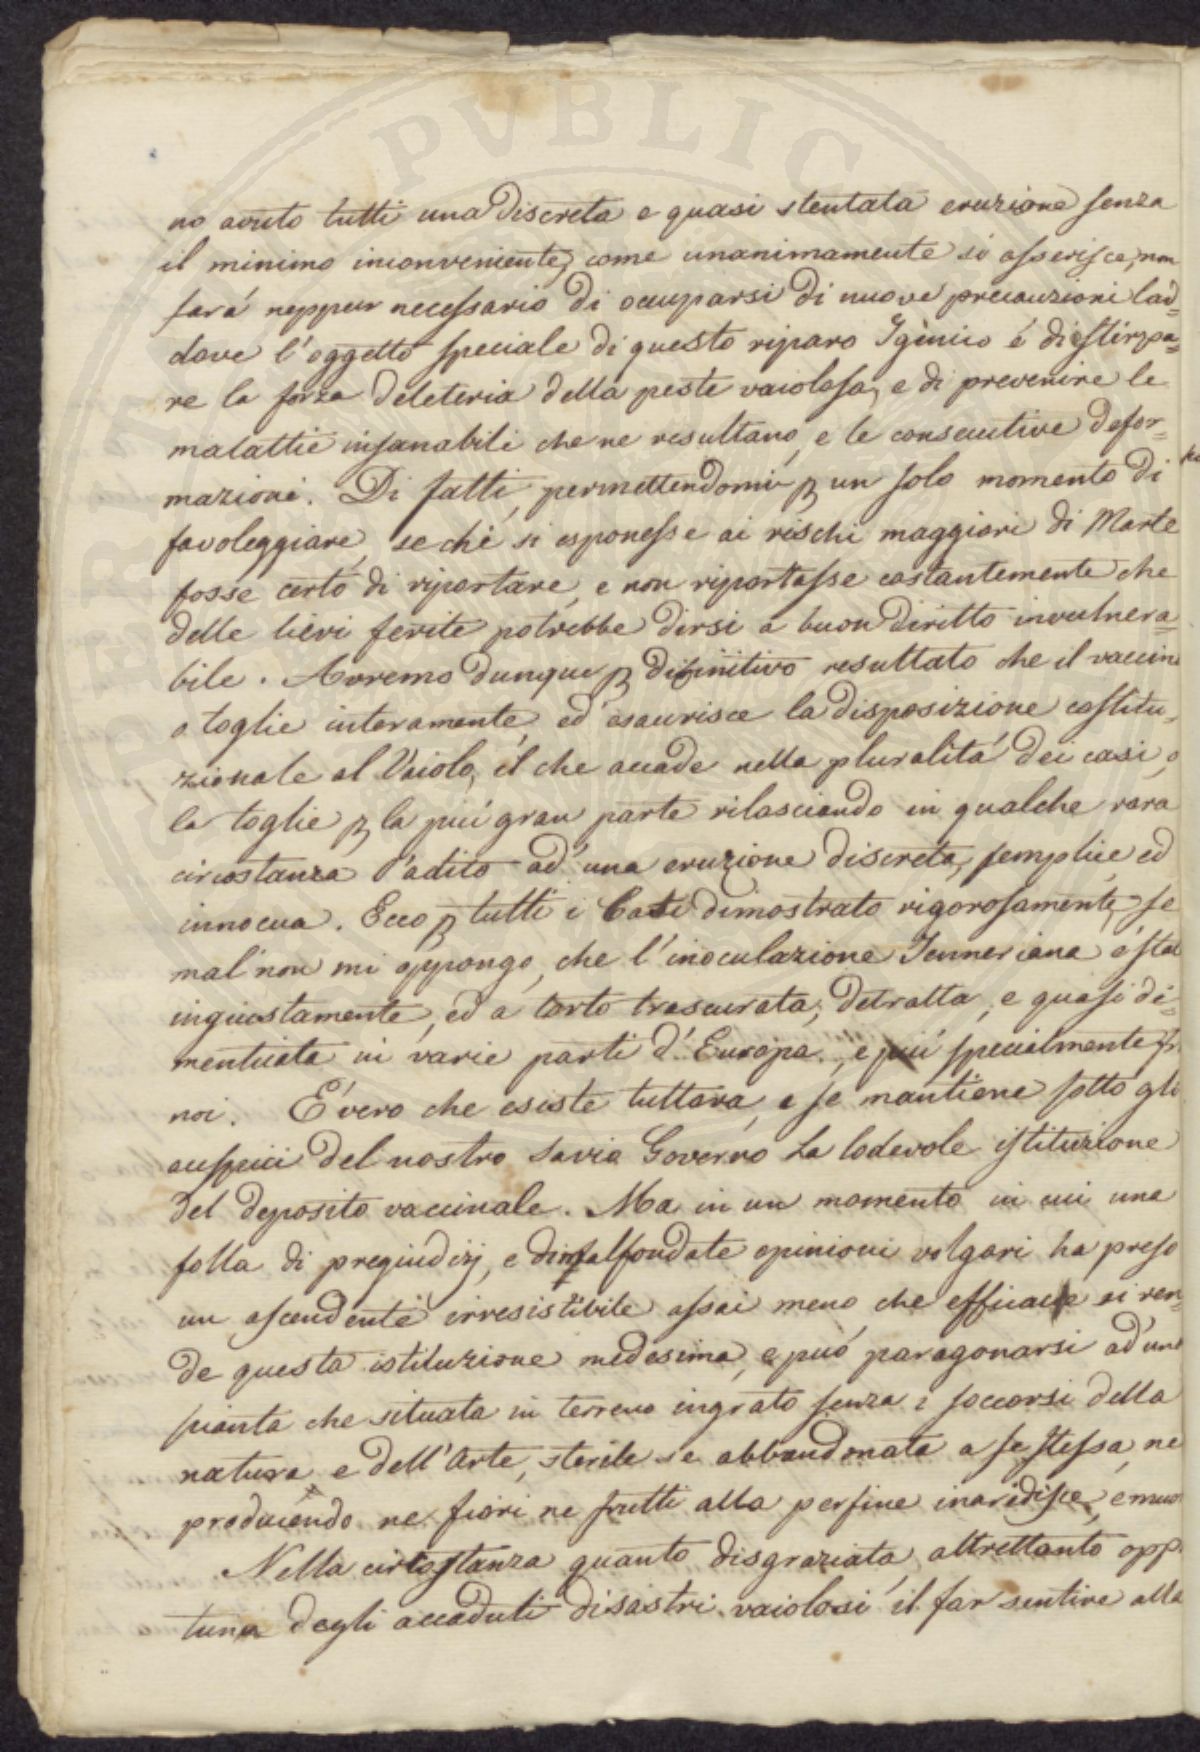 no avuto tutti una discreta e quasi stentata eruzione senza
il minimo inconveniente, come unanimamente si asserisce, non
sará neppur necessario di occuparsi di nuove precauzioni lad=
dove l'oggetto speciale di questo riparo Igénico é di estirpa=
re la forza deleteria della peste vaiolosa, e di prevenire le
malattie insanabili che ne resultano, e le consecutive defor=
mazioni. Di fatti, permettendomi p un solo momento di
favoleggiare, se chi si esponesse ai rischi maggiori di Marte
fosse certo di riportare, e non riportasse costantemente che
delle lievi ferite potrebbe dirsi a buon diritto invulnera=
bile. Avremo dunque p difinitivo resultato che il vaccino
o toglie interamente, ed esaurisce la disposizione costitu=
zionale al Vaiolo, il che accade nella pluralitá dei casi, o
la toglie p la piú gran parte rilasciando in qualche rara
circostanza l'adito ad una eruzione discreta, semplice, ed
innocua. Ecco p tutti i Casi dimostrato rigorosamente, se
mal non mi oppongo, che l'inoculazione Jenneriana é stat
ingiustamente, ed a torto trascurata, detratta, e quasi di=
menticata in varie parti d'Europa, e piú specialmente fr.
noi. É vero che esiste tuttora, e se mantiene sotto gli
auspici del nostro Savio Governo la lodevole istituzione
del deposito vaccinale. Ma in un momento in cui una
folla di pregiudizj, e di malfondate opinioni volgari ha preso
un ascendente irresistibile assai meno che efficace si ren=
de questa istituzione medesima, e puó paragonarsi ad una
pianta che situata in terreno ingrato senza i soccorsi della
natura e dell'Arte, sterile se abbandonata a se stessa, ne
producendo ne fiori ne frutti alla perfine inaridisce, e muor
Nella circostanza quanto disgraziata, altrettanto opp.
tuna degli accaduti disastri vaiolosi il far sentire alla